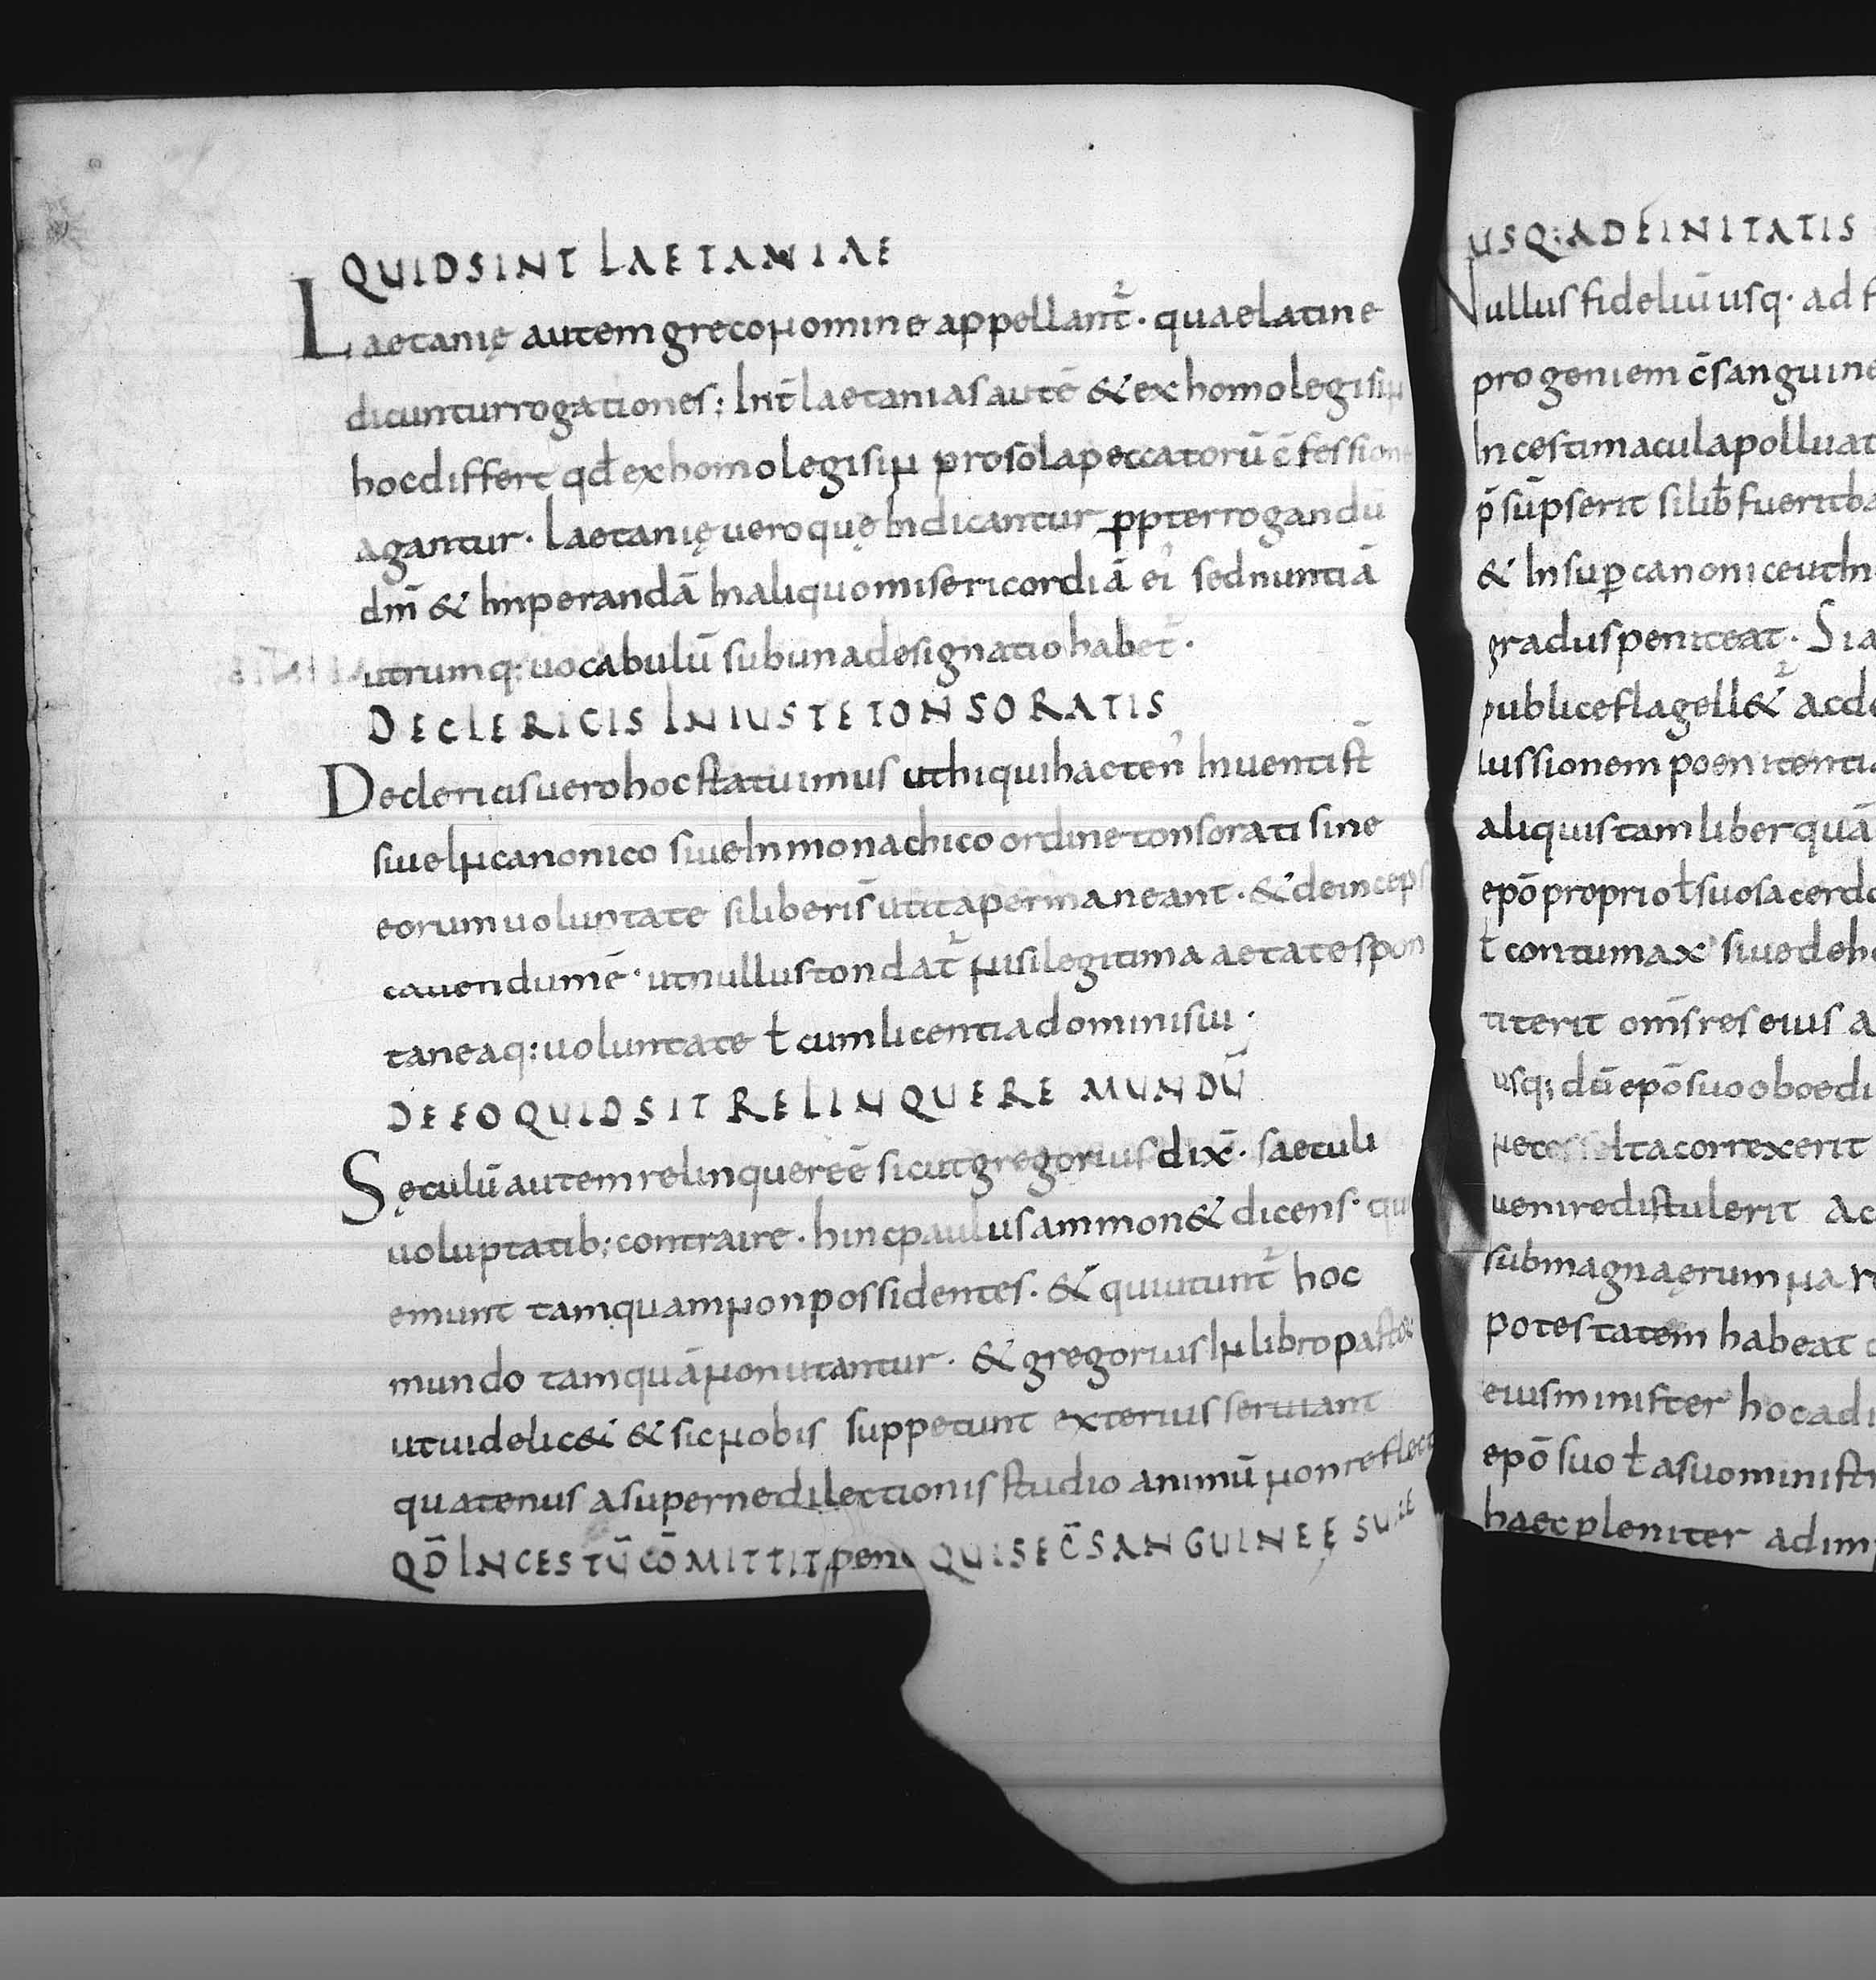 QUIDSINT LAETANIAE
Laetanię autem greco nomine appellant̄. quae latine
dicuntur rogationes; Int̄ laetanias autē & exhomolegisin
hoc differt qđ exhomolegisin pro sola peccatorū c̄fession
agantur. Laetanię uero quę indicantur ꝓpter rogandū
dn̄m & inperandā in aliquo misericordiā ei᾽ sed nunt iā
utrumq: uocabulū sub una designatio habet̄.
DE CLERICIS INIUSTE TONSORATIS
De clericis uero hoc statuimus ut hi qui hacten᾽ inuenti st̄
siue in canonico siue in monachico ordine tonsorati sine
eorum uoluntate si liberi s̄ ut ita permaneant. & deinceps
cauendum ē. ut nullus tondat̄ nisi legitima aetate spon
taneaq: uoluntate ł cum licentia domini sui.
DE EO QUID SIT RELINQUERE MUNDŪ
Sęculū autem relinquere ē sicut gregorius dix̄. saeculi
uoluptatib; contraire. hinc paulus ammon& dicens. qui
emunt tamquam non possidentes. & qui utunt̄ hoc
mundo tamquā non utantur. & gregorius in libro pastor
ut uidelic& & sic nobis suppetunt exterius seruiant
quatenus a superne dilectionis studio animū non reflect
QD̄ INCESTŪ CŌMITTIT QUI SE C̄SANGUINEĘ SUAE
USQ: AD FINITATIS
Nullus fideliū usq. ad f
progeniem c̄sanguine
Incesti macula polluat
p̄sūpserit si lib̄ fuerit ba
& insuꝑ canonice ut in
gradus peniteat. Si a
publice flagell&̄ ac de
iussionem poenitentia
aliquis tam liber quā
epō proprio ł suo sacerdo
ł contumax siue de h
titerit om̄s res eius a
usq; dū epō suo oboedi
nec ita correxerit
uenire distulerit ac
sub magna ęrumna r
potestatem habeat
eius minister hoc adi
epō suo ł a suo ministr
haec pleniter adim